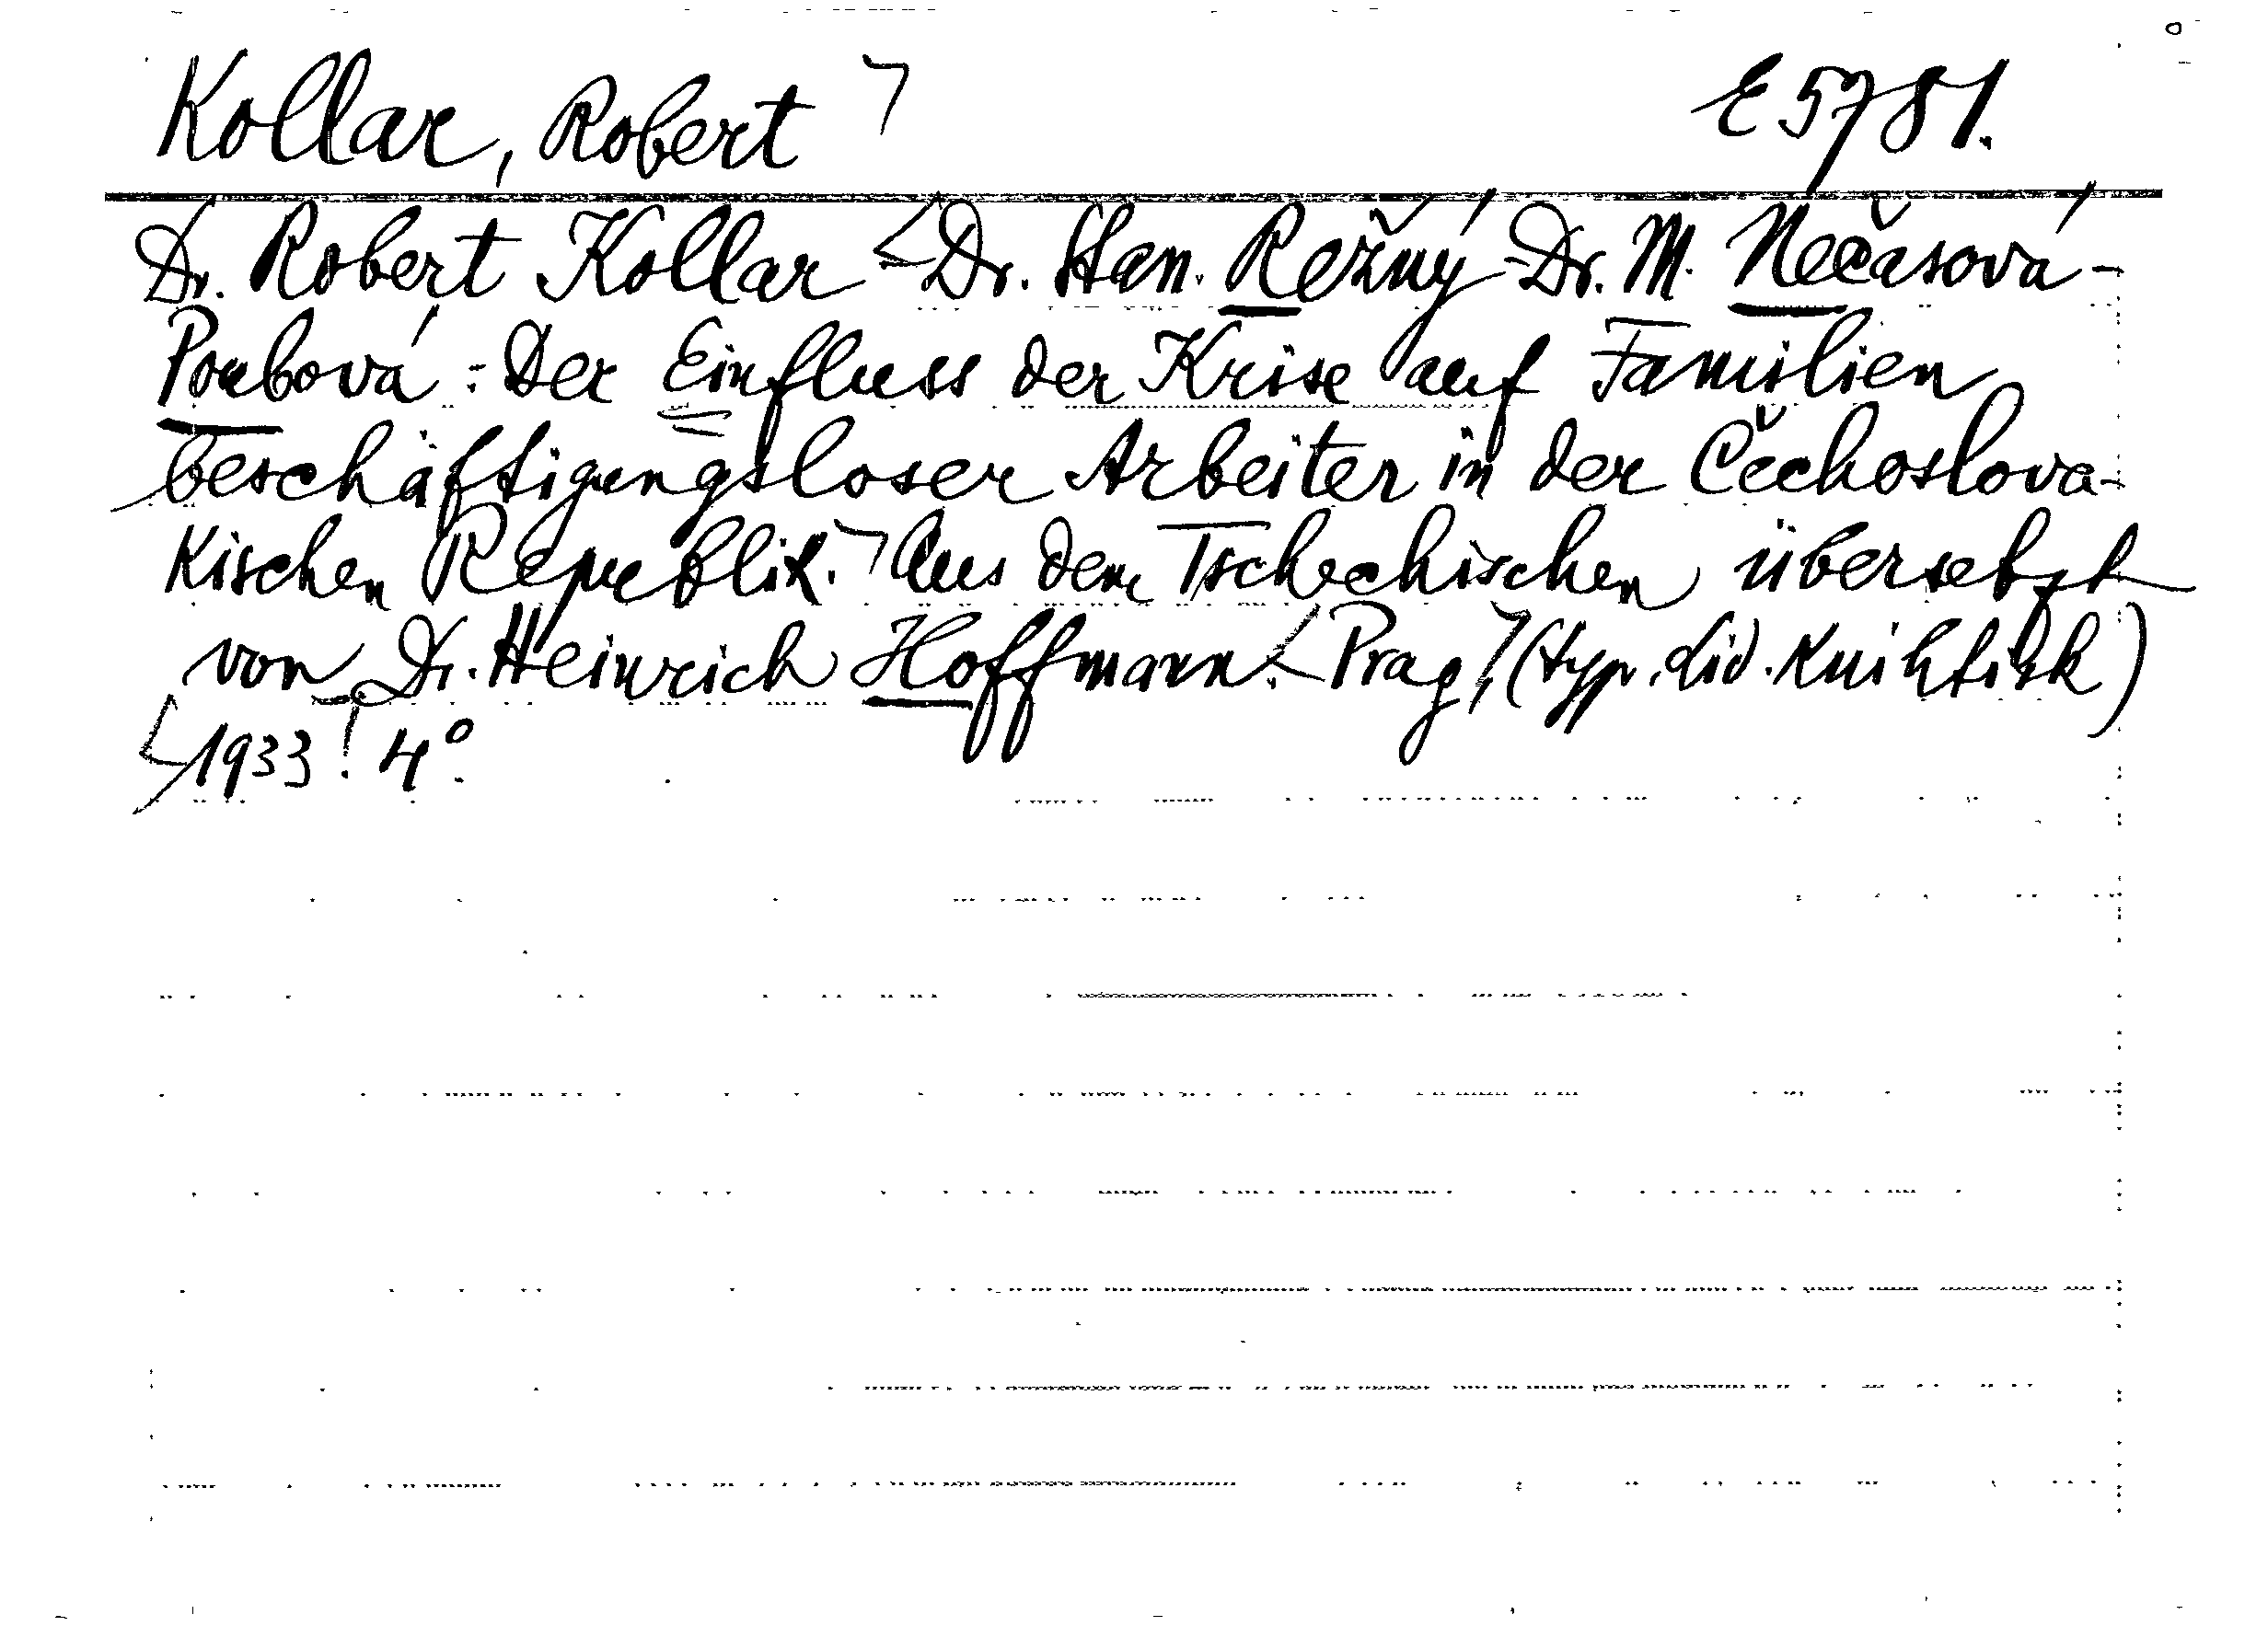 Kollar, Robert E 5781.
Dr. Robert Kollar - Dr. Stan. Režný - Dr. M. Nečasová-
Poubová: Der Einfluss der Krise auf Familien
beschäftigungsloser Arbeiter in der Čechoslova-
kischen Republik. Aus dem Tschechischen übersetzt
von Dr. Heinrich Hoffmann. Prag, (typ. Lid. Knihtisk)
1933. 4°.